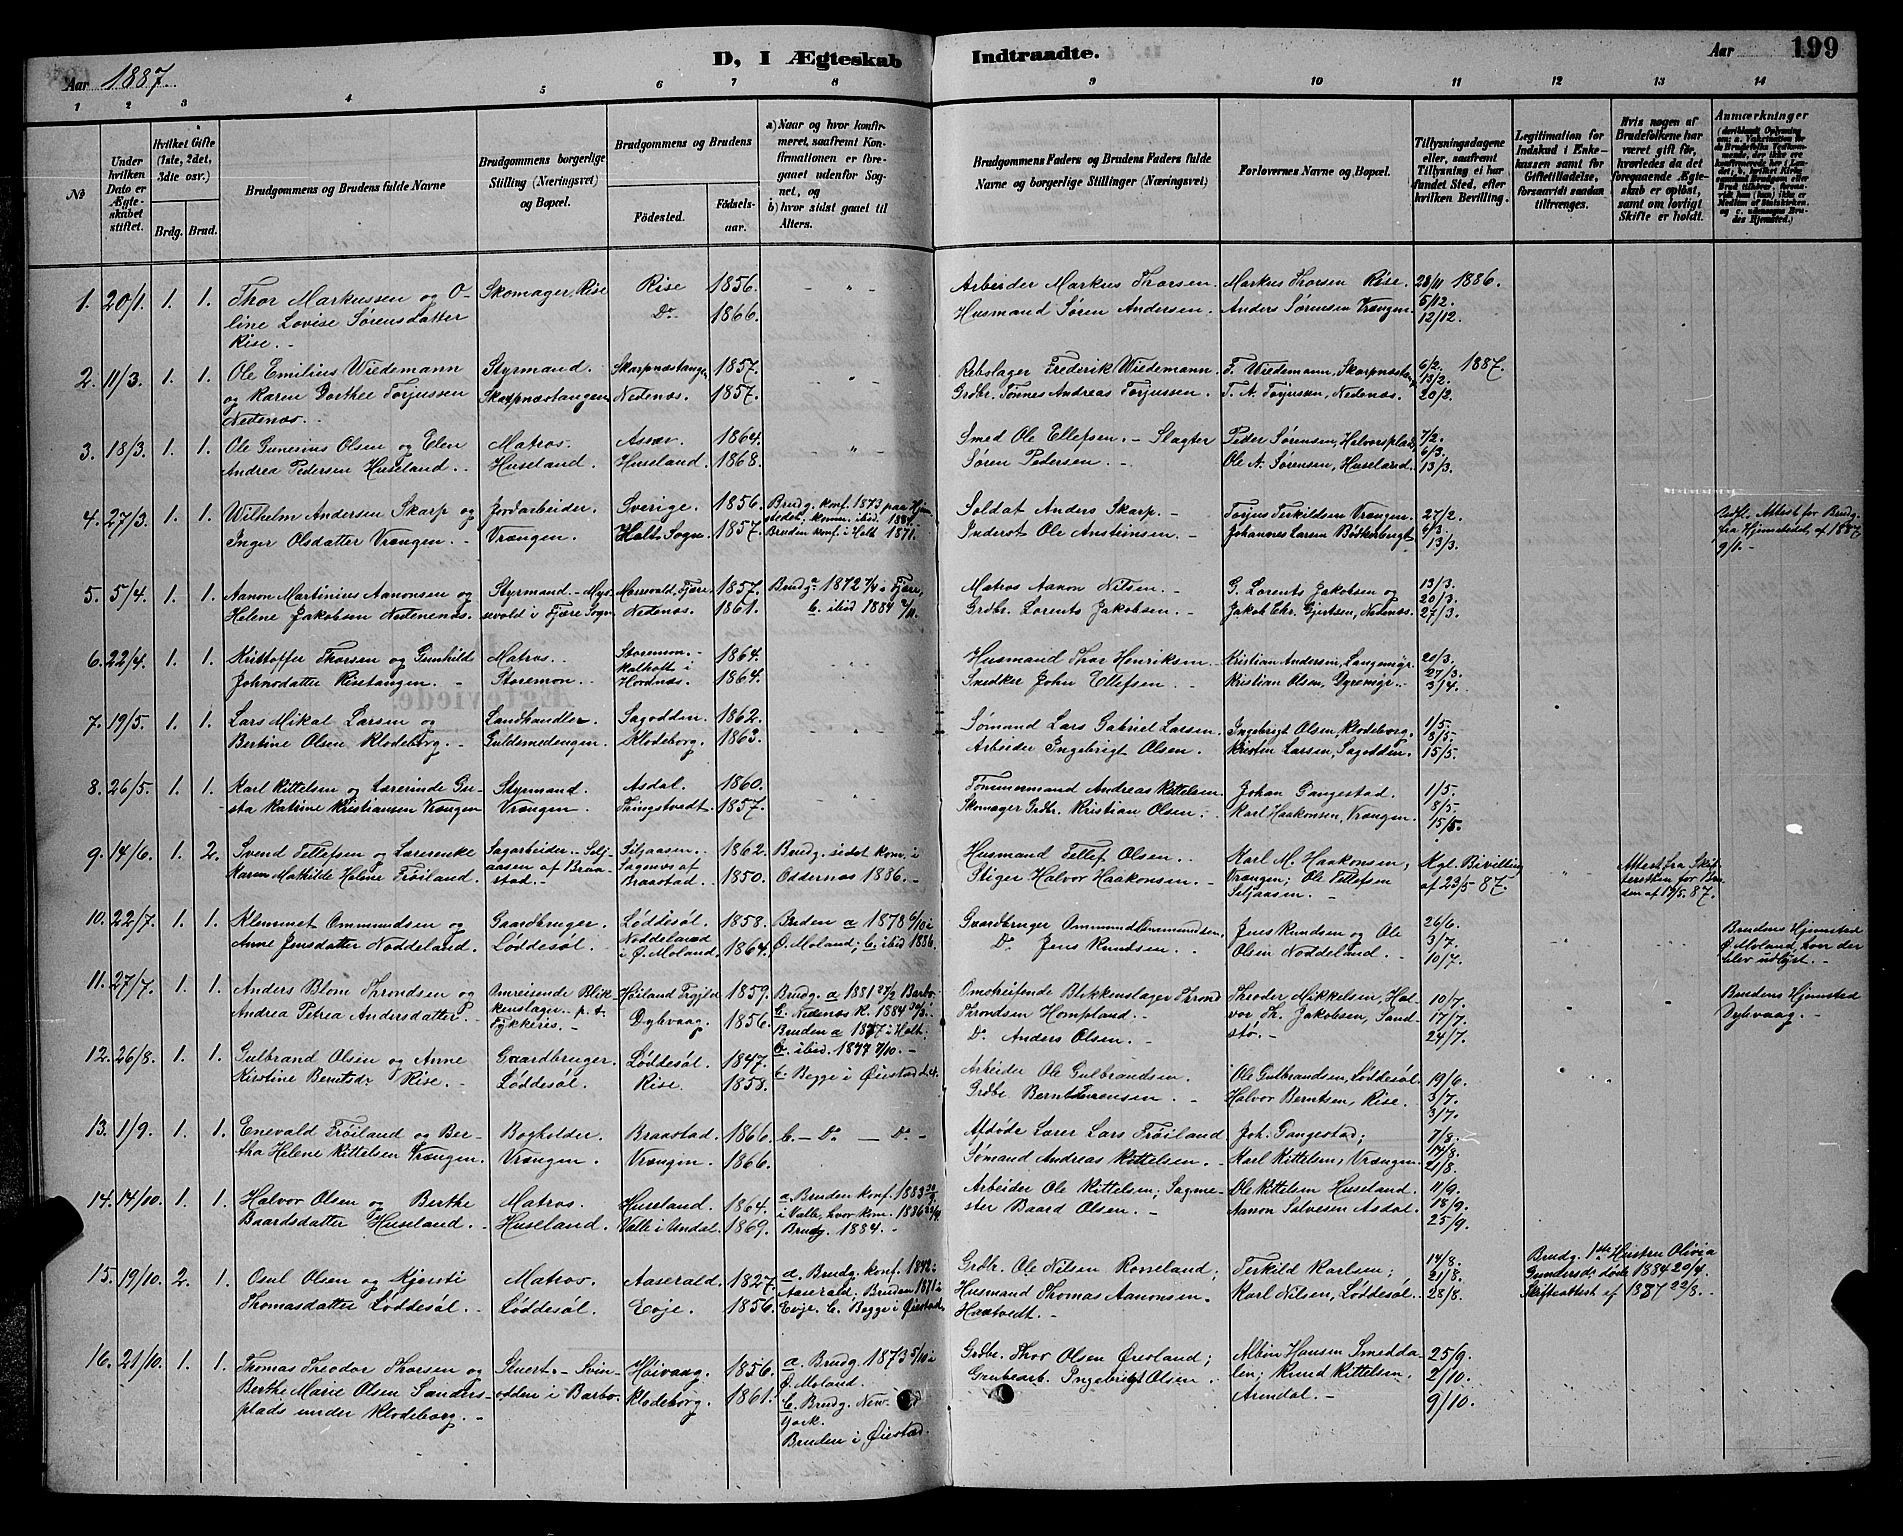 D, I Ægteskab Indtraadte.
Aar 1887.
Aar 199
1 2 3 4 5 6 7 8 9 10 11 12 13 14
№
Under hvilken Dato er Ægteskabet stiftet.
Hvilket Gifte (1ste, 2det, 3die osv.)
Brdg. Brud.
Brudgommens og Brudens fulde Navne
Brudgommens borgerlige Stilling (Næringsvei) og Bopæl.
Brudgommens og Brudens
Födested.
Födselsaar.
a) Naar og hvor konfirmeret, saafremt Konfirmationen er foregaaet udenfor Sognet, og
b) hvor sidst gaaet til Alters.
Brudgommens Faders og Brudens Faders fulde Navne og borgerlige Stillinger (Næringsvei)
Forlovernes Navne og Bopæl.
Tillysningsdagene eller, saafremt Tillysning ei har fundet Sted, efter hvilken Bevilling.
Legitimation for Indskud i Enkekassen samt for Giftetilladelse, forsaavidt saadan tiltrænges.
Hvis nogen af Brudefolkene har været gift før, hvorledes da det foregaaende Ægteskab er opløst, samt om lovligt Skifte er holdt.
Anmærkninger
1. 20/1. 1. 1. Thor Markussen og O- Skomager, Rise Rise 1856. Arbeider Markus Thorsen. Markus Thorsen Rise. 28/11 1886.
line Lovise Sørensdatter Do 1866. Husmand Søren Andersen. Anders Sørensen Vrængen. 5/12.
Rise. 12/12.
2. 11/3. 1. 1. Ole Emilius Wiedemann Styrmand. Skarpnæstangen 1857. Rebslager Frederik Wiedemann. F. Wiedemann, Skarpnæstang 6/2. 1887.
og Karen Dorthee Torjussen Skarpnæstangen Nedenæs. 1857. Grdbr. Tønnes Andreas Torjussen. T. A. Torjussen, Nedenæs. 13/2.
Nedenæs. 20/2.
3. 18/3. 1. 1. Ole Gunerius Olsen og Elen Matros. Assæv. 1864. Smed Ole Ellefsen. - Slagter Peder Sørensen, Halvorsplads 7/2.
Andrea Pedersen Huseland. Huseland. Huseland. 1868. Søren Pedersen. Ole N. Sørensen, Huseland. 6/3.
13/3.
4. 27/3. 1. 1. Wilhelm Andersen Skarp og Jordarbeider. Sverige. 1856. Brudg. konf. 1873 paa Hjemstedet, komm. ibid. 1884. Soldat Anders Skarp. Torjus Terkildsen Vrængen. 27/2. Udfl. Attest for Brudg. fra Hjemstedet af 1887 9/1.
Inger Olsdatter Vrængen. Vrængen. Holt Sogn. 1857. Bruden konf. i Holt 1871. Inderst Ole Ansteinsen. Johannes Larsen Bødkerbergt 6/3.
13/3.
5. 5/4. 1. 1. Aanon Martinius Aanonsen og Styrmand. Morvold, Fjære. 1857. Brudg. a 1872 7/4 i Fjære, Matros Aanon Nilsen. G. Lorents Jakobsen og 13/3.
Helene Jakobsen Nedenæs. i Fjære Sogn Nedenæs. 1861. b. ibid 1884 2/11. Grdbr. Lorents Jakobsen. Jakob Chr. Gjertsen, Nedenæs. 20/3.
27/3.
6. 22/4. 1. 1. Kristoffer Thorsen og Gunhild Matros. Storemon. 1864. Husmand Thor Henriksen Kristian Andersen, Langemyr. 20/3.
Johnsdatter Risetangen. Storemon. Kalhoft i Hordnæs. 1864. Snedker John Ellefsen. Kristian Olsen, Dyremyr. 27/3.
3/4.
7. 19/5. 1. 1. Lars Mikal Larsen og Landhandler. Sagodden. 1862. Sømand Lars Gabriel Larsen Ingebrigt Olsen, Klodeborg. 1/5.
Bertine Olsen Klodeborg. Guldsmedengen. Klodeborg. 1863. Arbeider Ingebrigt Olsen. Kristen Larsen, Sagodden. 8/5.
15/5.
8. 26/5. 1. 1. Karl Kittelsen og Lærerinde Gu- Styrmand. Asdal. 1860. Tømmermand Andreas Kittelsen. Johan Gangestad. 1/5.
sta Katrine Kristiansen Vrængen Vrængen. Tingstvedt. 1857. Skomager Grdbr. Kristian Olsen. Karl Haakonsen, Vrængen. 8/5.
15/5.
9. 14/6. 1. 2. Svend Tellefsen og Lærerenke Sagarbeider. Seljaasen. 1862. Brudg. sidst kom. i Husmand Tellef Olsen. Karl M. Haakonsen, Kgl. Bevilling Attest fra Skifteretten for Bruden af 17/5. 87.
Karen Mathilde Helene Trøiland. Seljaasen af Braastad. Sagenes af Braastad. 1850. Oddernæs 1886. Stiger Halvor Haakonsen. Vrængen; Ole Tellefsen Seljaasen. af 23/5 87.
10. 22/7. 1. 1. Klemmet Ommundsen og Gaardbruger. Løddesøl. 1858. Bruden a 1878 6/10 i Gaardbruger Ommund Ommundsen, Jens Knudsen og Ole 26/6. Brudens Hjemsted
Anne Jensdatter Noddeland. Løddesøl. Noddeland i Ø. Moland. 1864. Ø. Moland; b. ibid 1886. Do Jens Knudsen. Olsen Noddeland. 3/7. Ø. Moland, hvor der
10/7. blev udlyst.
11. 27/7. 1. 1. Anders Blom Throndsen og Omreisende Blikkenslager. p. t. Høiland 1859. Brudg. a 1881 27/2 Barbo. Omstreifende Blikkenslager Thrond Theodor Mikkelsen, Hal- 10/7. Brudens Hjemsted
Andrea Petrea Andersdatter. Tykkeris. Dybvaag. 1856. b. Nedenæs K. 1884 Throndsen Hompland. vor Th. Jakobsen, Sand- 17/7. Dybvaag.
Bruden a 1877 i Holt. Do Anders Olsen. stø. 24/7.
b. ibid. 1877 7/10.
12. 26/8. 1. 1. Gulbrand Olsen og Anne Gaardbruger Løddesøl. 1847. b. Begge i Øiestad Arbeider Ole Gulbrandsen. Ole Gulbrandsen, Løddesøl. 19/6.
Kirstine Berntsdr Rise. Løddesøl. Rise. 1858. Grdbr. Bernt Evensen. Halvor Berntsen, Rise. 3/7.
3/7.
13. 1/9. 1. 1. Enevald Trøiland og Ber- Bogholder. Braastad. 1866. b. - Do - Do - Afdøde Lærer Lars Trøiland Joh. Gangestad; 7/8.
tha Helene Kittelsen Vrængen. Vrængen. Vrængen. 1866. Sømand Andreas Kittelsen. Karl Kittelsen, Vrængen 14/8.
21/8.
14. 14/10. 1. 1. Halvor Olsen og Berthe Matros. Huseland. 1864. a. Bruden konf. 1883 Arbeider Ole Kittelsen; Sagme- Ole Kittelsen Huseland. 11/9.
Baardsdatter Huseland. Huseland. Valle i Undal. 1869. i Valle, hvor kom. 1886 ster Baard Olsen. Aanon Salvesen Asdal. 18/9.
Brudg. 1884. 25/9.
15. 19/10. 2. 1. Osul Olsen og Kjersti Matros. Aaserald. 1827. a. Brudg. konf. i Aaserald; Bruden 1871 i Grdbr. Ole Nilsen Rosseland; Terkild Karlsen; 14/8. Brudg. 1ste Hustru Olivia
Thomasdatter Løddesøl. Løddesøl. Evje. 1856. Evje. b. Begge i Øiestad. Husmand Thomas Aanonsen Karl Nilsen, Løddesøl. 21/8. Gundersdr. døde 1884 20/4.
Haatvedt. 28/8. Skifteattest af 1887 22/8.
16. 21/10. 1. 1. Thomas Theodor Thorsen og Stuert. - Svin- Høivaag. 1856. a. Brudg. 1873 5/10 i Grdbr. Thor Olsen Øresland; Albin Hansen Smedda- 25/9.
Berthe Marie Olsen Sanders- odden i Barbo. Klodeborg. 1861. Ø. Moland. Grubearb. Ingebrigt Olsen. len; Knud Kittelsen, 2/10.
plads under Klodeborg. b. Brudg. New York. Arendal. 9/10.
Bruden i Øiestad.